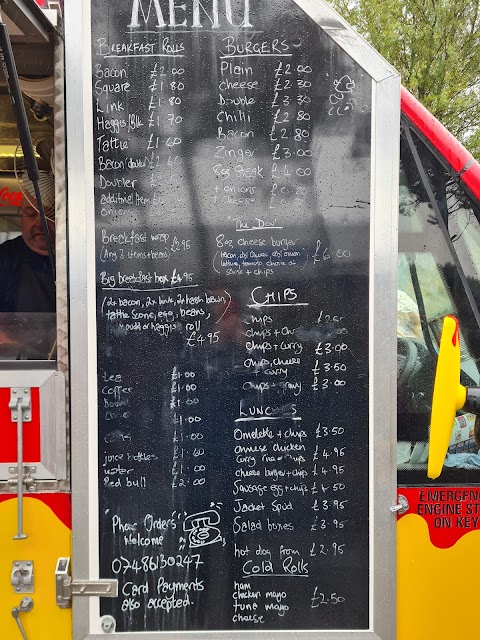 MENU
BREAKFAST ROLLS
Bacon £2.00
Square £1.80
Link £1.80
Haggis/Blk £1.70
Tattie £1.60
Bacon (double)
Doubler
additional Item
onion
Breakfast wrap £2.95
(Any 3 items + beans)
Big breakfast box £4.95
(2x bacon, 2x link, 2x hash brown)
tattie scone, egg, beans,
pudd or haggis roll
£4.95
tea £1.00
coffee £1.00
£1.00
£1.00
£1.00
juice bottles
water £1.00
Red bull £2.00
"Phone Orders"
Welcome
07486130247
Card Payments
also accepted.
BURGERS
Plain £2.00
cheese £2.30
Double £3.30
Chilli £2.80
Bacon £2.80
Zinger £3.00
8oz Steak £4.00
+ onions
+ cheese
"The Don"
8oz cheese burger £6.00
sauce + chips
CHIPS
chips
chips + Ch
chips + curry £3.00
chips, cheese
+ curry £3.50
chips + gravy £3.00
LUNC S
Omelette + chips £3.50
chinese chicken
curry rice + chips £4.95
cheese burger + chips £4.95
Sausage egg + chips £4.50
Jacket Spud £3.95
Salad boxes £3.95
hot dog from £2.95
COLD ROLLS
ham
chicken mayo
tuna mayo £2.50
cheese
EMERGENC
ENGINE ST
ON KEY